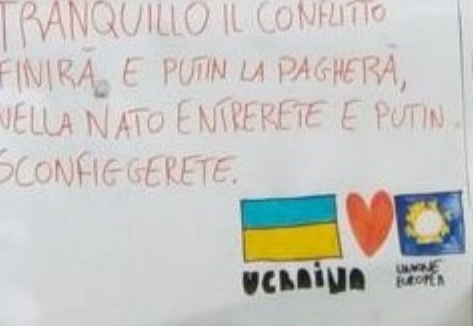 TRANQUILLO IL CONFLITTO
FINIRÀ, E PUTIN LA PAGHERÀ,
NELLA NATO ENTRERETE E PUTIN
SCONFIGGERETE.
UCRAINA
UNIONE
EUROPEA